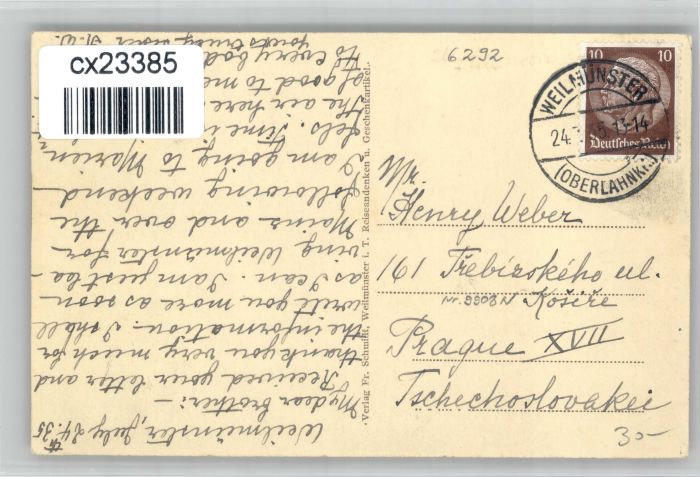 Weilmünster, July 24th 35
My dear brother: —
Received your letter and
thank you very much for
the information. I shall
write you more as soon
as I can. I am just lea-
ving Weilmünster for
Mainz and over the
following weekend
I am going to Marien-
fels. Time i
the air here
of good to me
to every bod
yours truly sister H.W.
cx23385
Verlag Fr. Schmidt, Weilmünster i. T. Reiseandenken u. Geschenkartikel.
6292
10 10
Deutsches Reich
WEILMÜNSTER
24. 5.13-14
(OBERLAHNKR.)
Mr.
Henry Weber
161 Třebízského ul.
Nr. 9908N Košíře
Prague XVII
Tschechoslovakei
30-